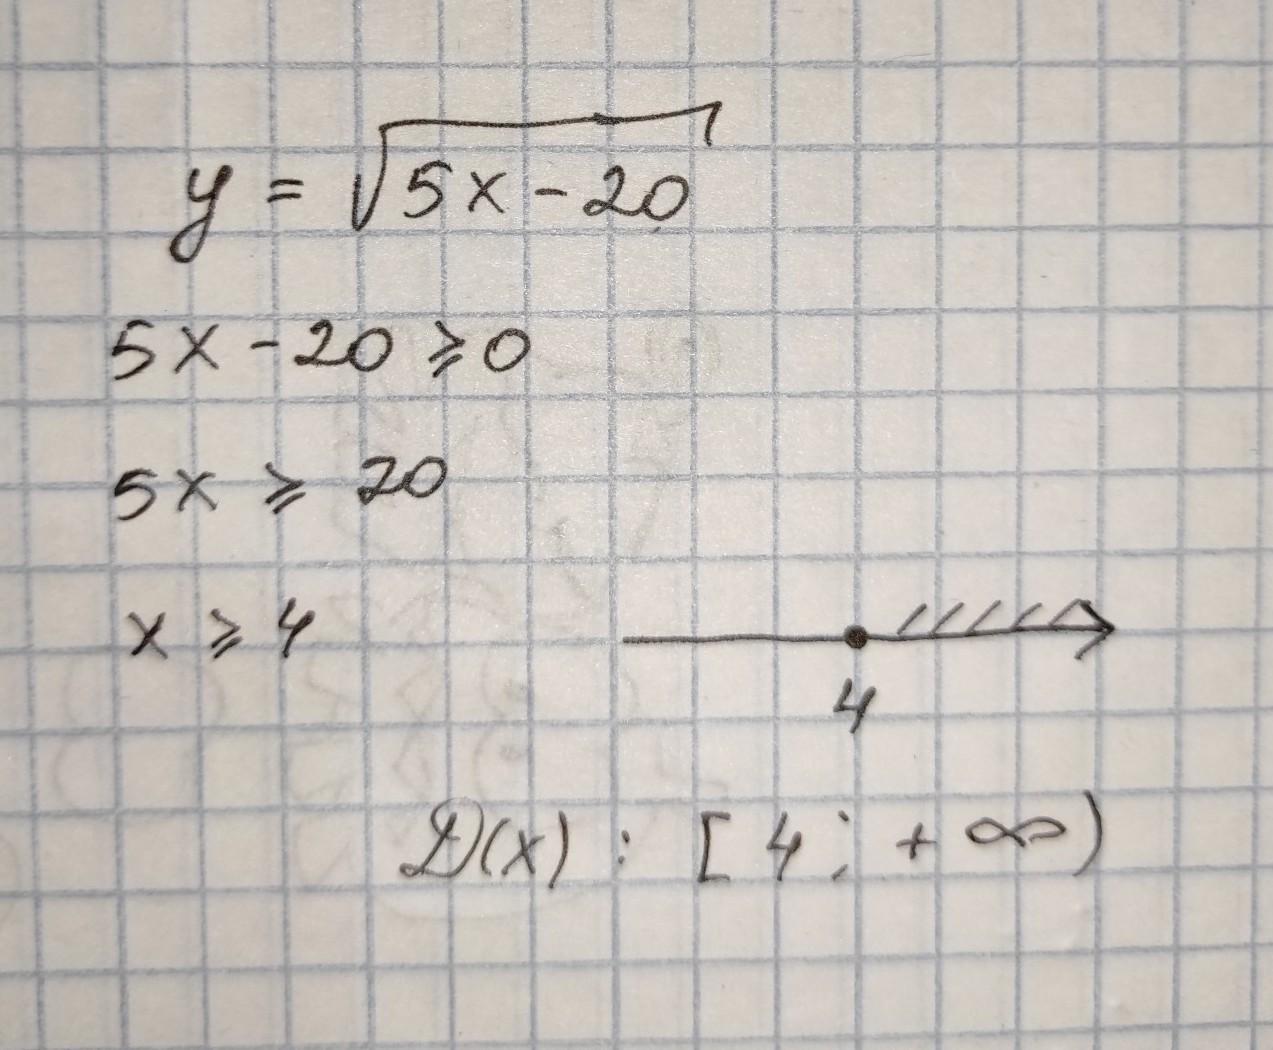 y = √5x - 20
5x - 20 ⩾ 0
5x ⩾ 20
x ⩾ 4
4
D(x) : [4; + ∞)